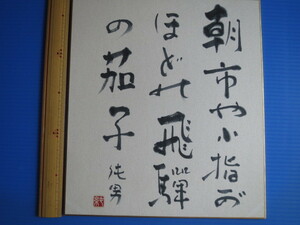 朝市や小指が
ほどの飛騨
の茄子
純男